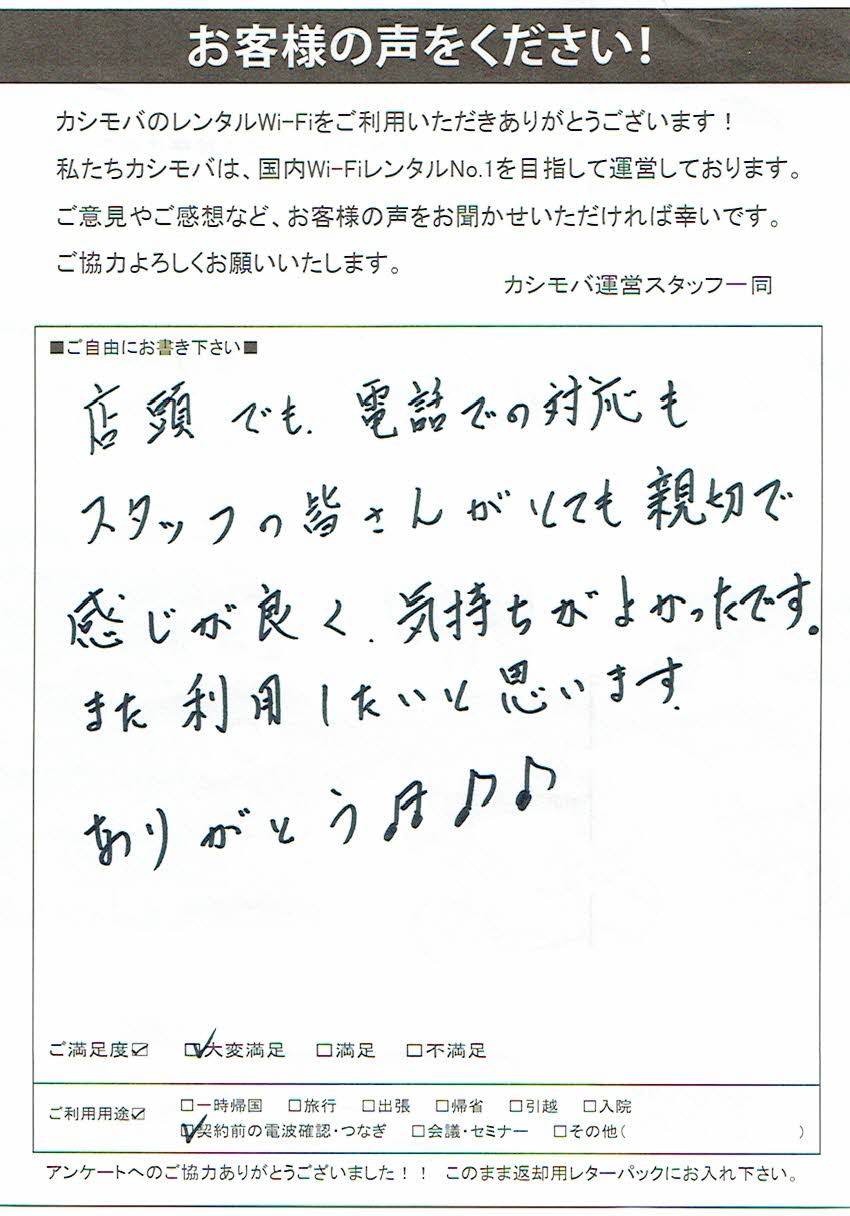 お客様の声をください!
カシモバのレンタルWi-Fiをご利用いただきありがとうございます！
私たちカシモバは、国内Wi-FiレンタルNo.1を目指して運営しております。
ご意見やご感想など、お客様の声をお聞かせいただければ幸いです。
ご協力よろしくお願いいたします。
カシモバ運営スタッフ一同
■ご自由にお書き下さい■
店頭でも、電話での対応も
スタッフの皆さんがとても親切で
感じが良く、気持ちがよかったです。
また利用したいと思います。
ありがとう♬♪♪
ご満足度☑ ☑大変満足 □満足 □不満足
ご利用用途☑ □一時帰国 □旅行 □出張 □帰省 □引越 □入院
☑契約前の電波確認・つなぎ □会議・セミナー □その他( )
アンケートへのご協力ありがとうございました！！ このまま返却用レターパックにお入れ下さい。